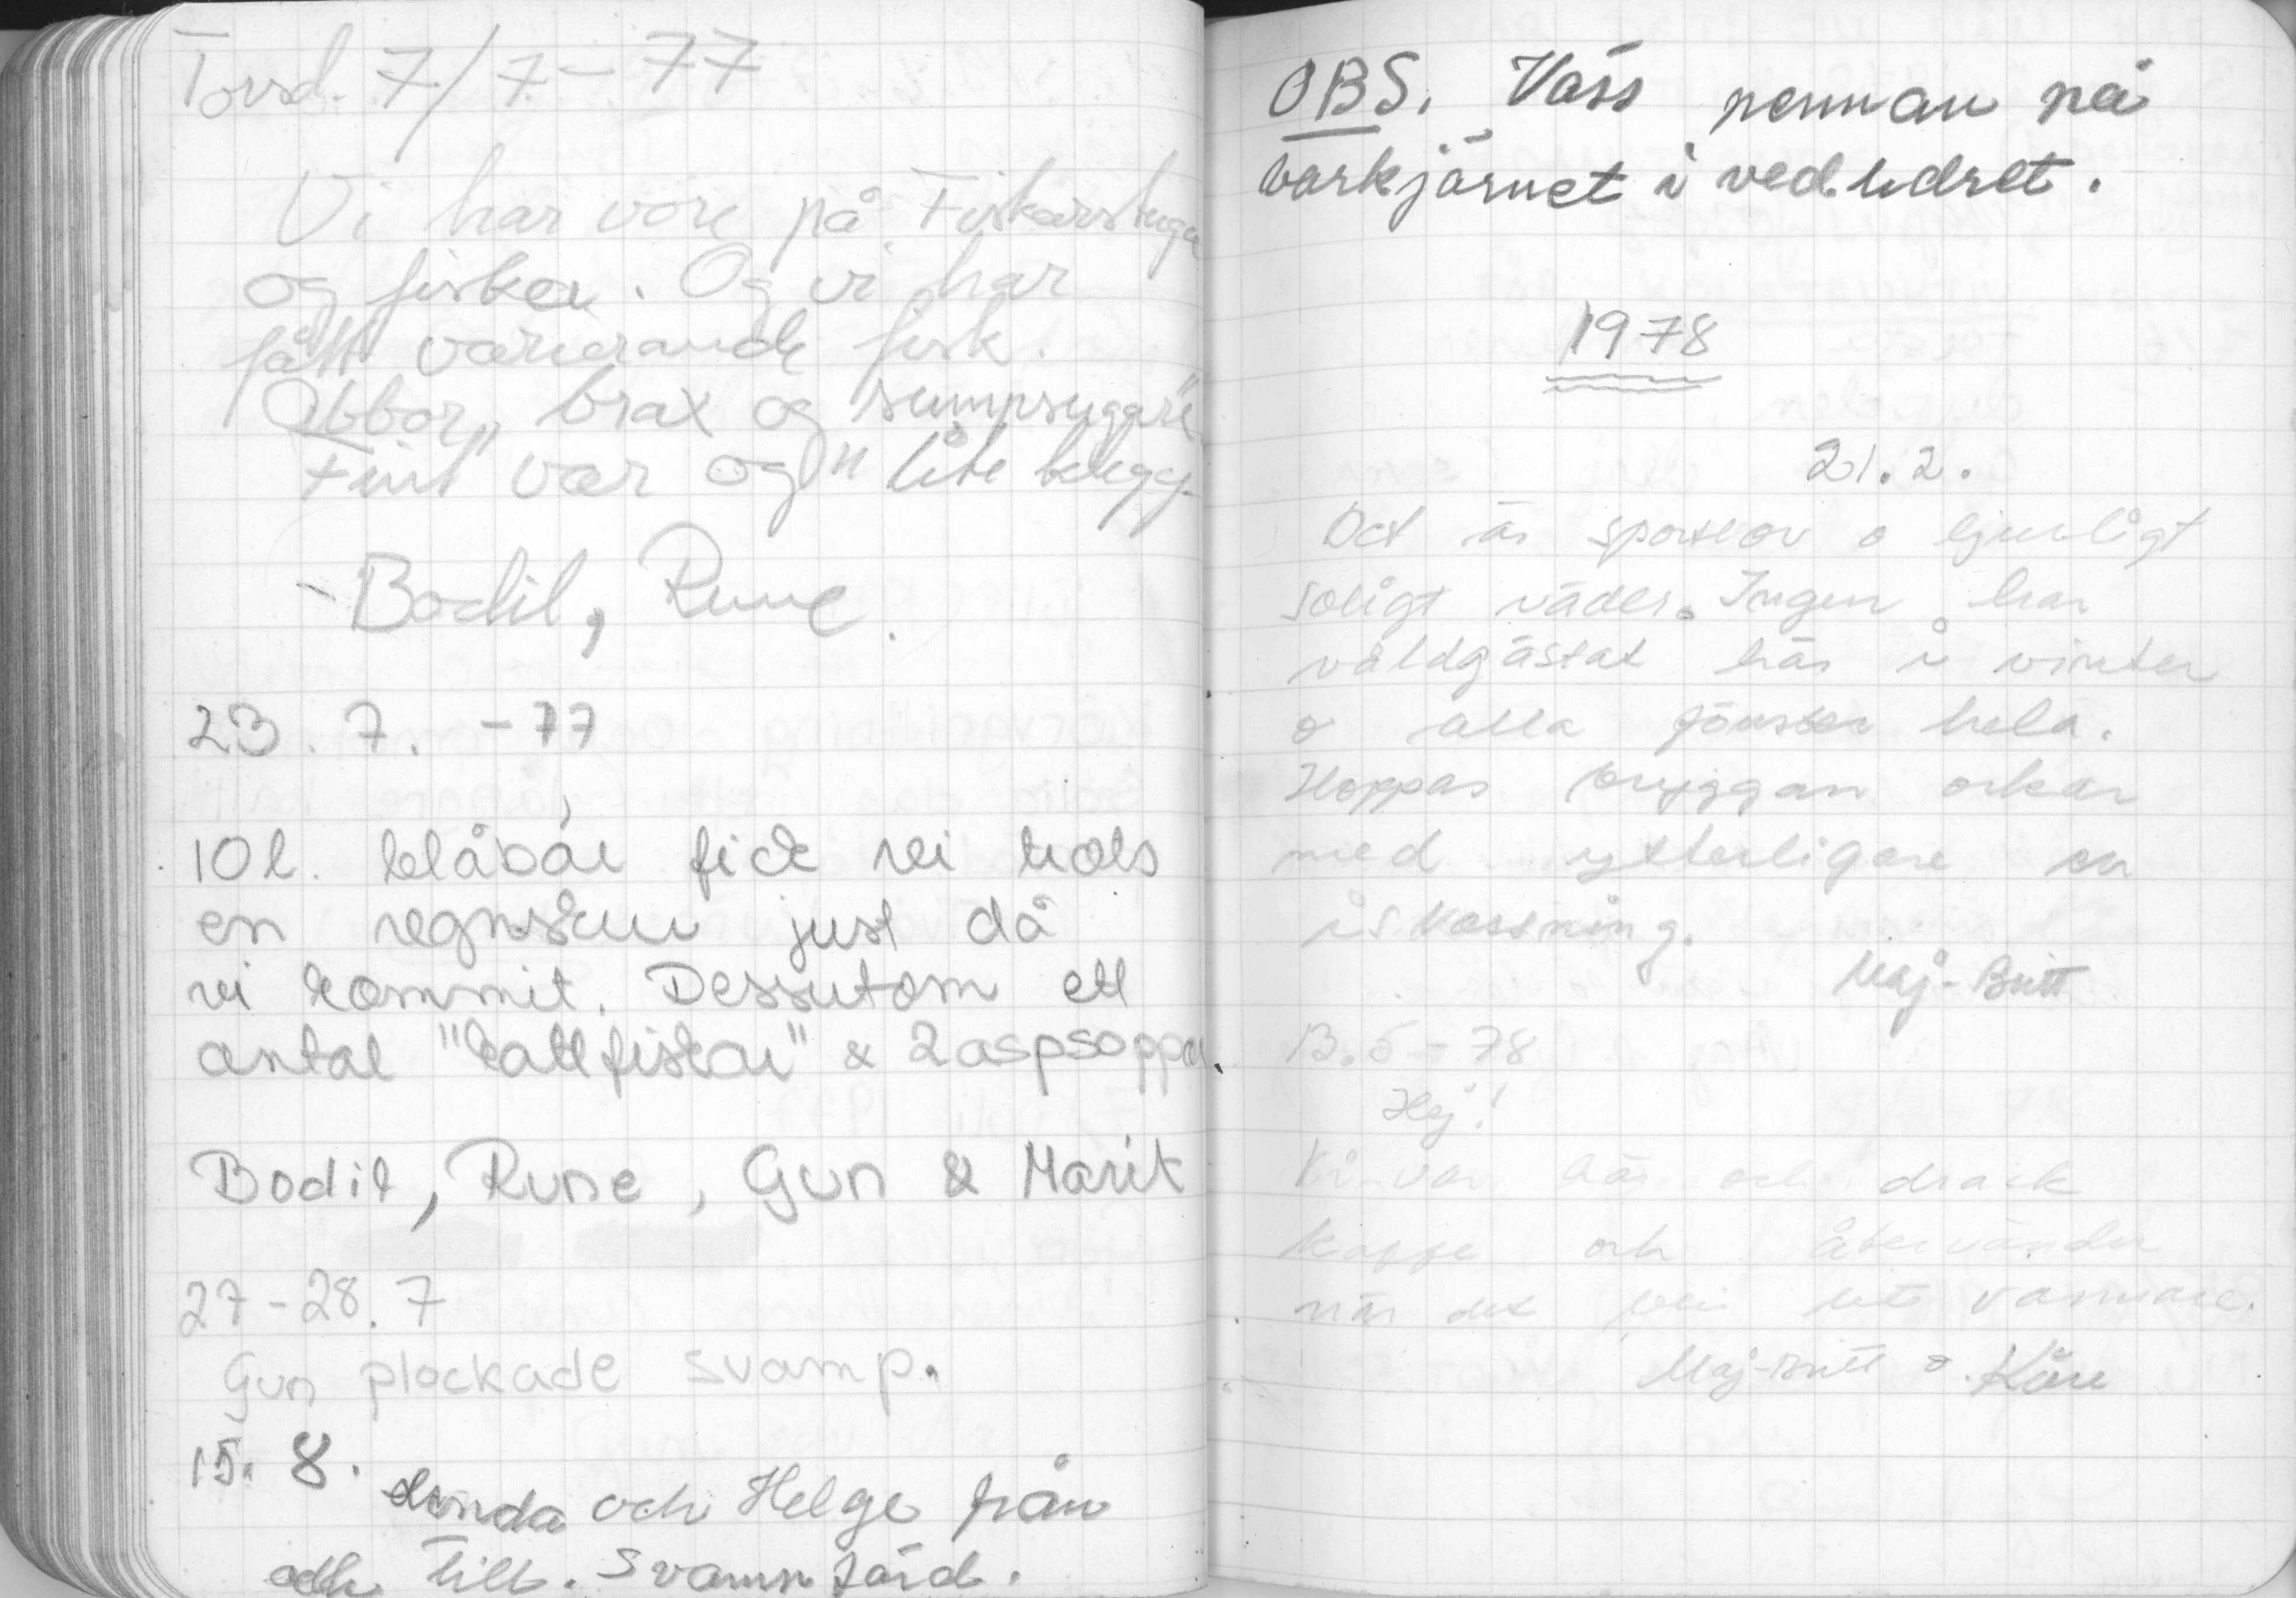 Torsd. 7/7-77
Vi har vore på Fiskarstuga
og fiska. Og vi har
fått varierande fisk.
Abbor, brax og "sumpsuggare"
"Fint" vær og "lite" klegg.
Bodil, Rune.
23. 7. -77
10 l. blåbär fick vi trots
en regnskur just då
vi kommit. Dessutom ett
antal "kattfiskar" & 2 aspsoppar.
Bodil, Rune, Gun & Marit
27-28. 7
Gun plockade svamp.
15. 8. Linda och Helge från
och till. Svampfärd.
OBS. Väss pennan på
barkjärnet i vedlidret.
1978
21.2.
Det är sportlov o ljuvligt
soligt väder. Ingen har
våldgästat här i vinter
o alla fönster hela.
Hoppas bryggan orkar
med ytterligare en
islossning.
Maj-Britt
13.5-78
Hej!
Vi var här och drack
kaffe och återvänder
när det blir lite varmare.
Maj-Britt o. Kåre